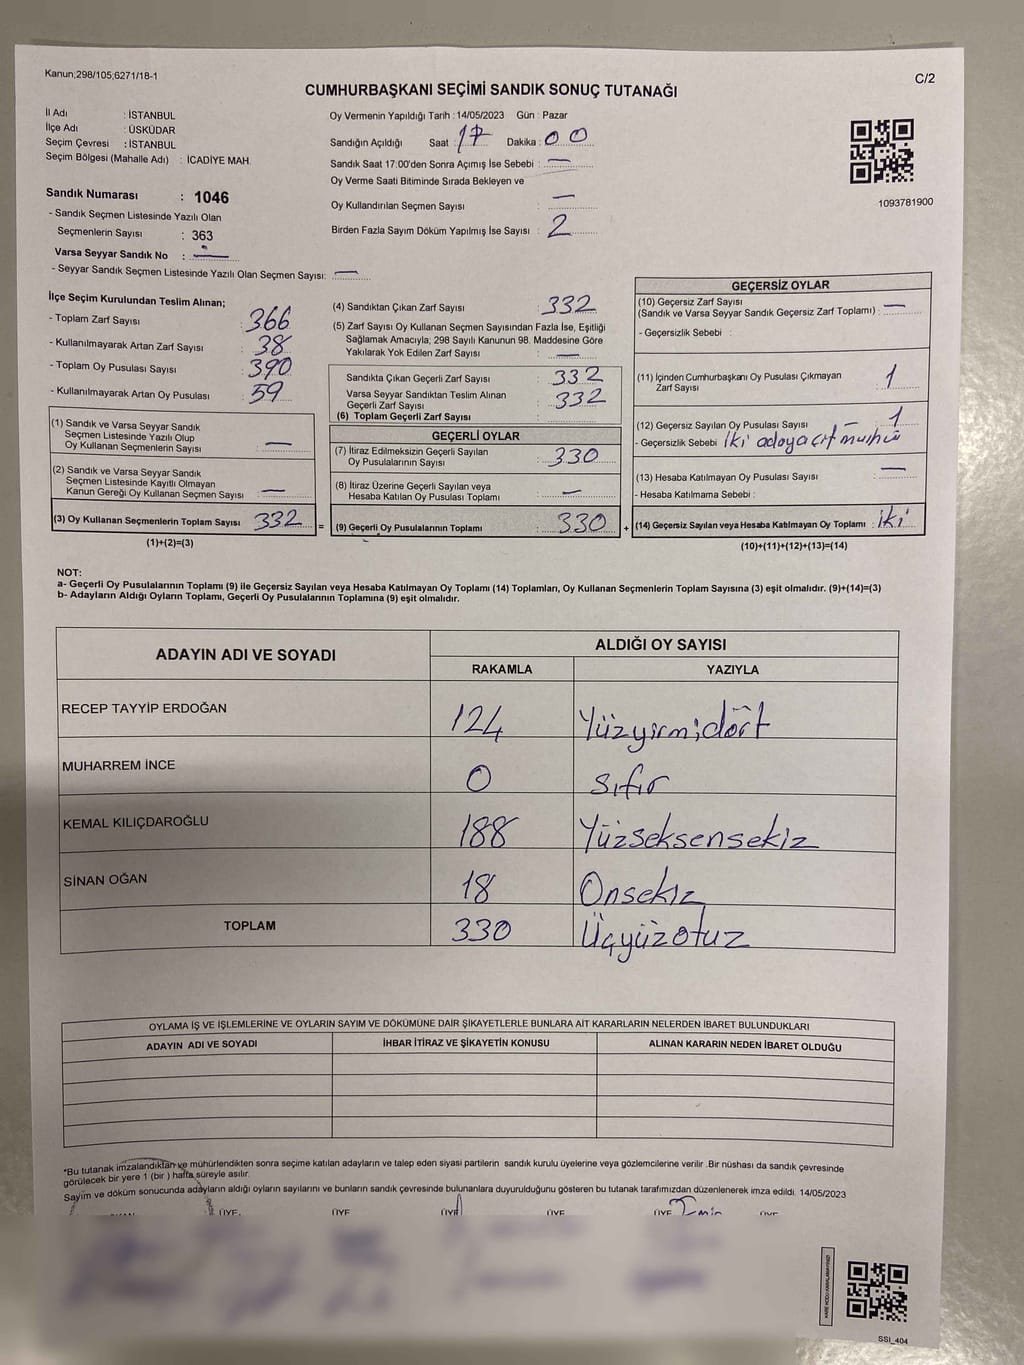 Kanun;298/105;6271/18-1
C/2
CUMHURBAŞKANI SEÇİMİ SANDIK SONUÇ TUTANAĞI
İl Adı : İSTANBUL
İlçe Adı : ÜSKÜDAR
Seçim Çevresi : İSTANBUL
Seçim Bölgesi (Mahalle Adı) : İCADİYE MAH.
Sandık Numarası : 1046
- Sandık Seçmen Listesinde Yazılı Olan
Seçmenlerin Sayısı : 363
Varsa Seyyar Sandık No : —
- Seyyar Sandık Seçmen Listesinde Yazılı Olan Seçmen Sayısı: —
Oy Vermenin Yapıldığı Tarih : 14/05/2023 Gün : Pazar
Sandığın Açıldığı Saat : 17 Dakika : 00
Sandık Saat 17:00'den Sonra Açımış İse Sebebi : —
Oy Verme Saati Bitiminde Sırada Bekleyen ve
Oy Kullandırılan Seçmen Sayısı : —
Birden Fazla Sayım Döküm Yapılmış İse Sayısı : 2
1093781900
İlçe Seçim Kurulundan Teslim Alınan;
- Toplam Zarf Sayısı : 366
- Kullanılmayarak Artan Zarf Sayısı : 38
- Toplam Oy Pusulası Sayısı : 390
- Kullanılmayarak Artan Oy Pusulası : 59
(1) Sandık ve Varsa Seyyar Sandık
Seçmen Listesinde Yazılı Olup
Oy Kullanan Seçmenlerin Sayısı : —
(2) Sandık ve Varsa Seyyar Sandık
Seçmen Listesinde Kayıtlı Olmayan
Kanun Gereği Oy Kullanan Seçmen Sayısı : —
(3) Oy Kullanan Seçmenlerin Toplam Sayısı : 332 =
(1)+(2)=(3)
(4) Sandıktan Çıkan Zarf Sayısı : 332
(5) Zarf Sayısı Oy Kullanan Seçmen Sayısından Fazla İse, Eşitliği
Sağlamak Amacıyla; 298 Sayılı Kanunun 98. Maddesine Göre
Yakılarak Yok Edilen Zarf Sayısı : —
Sandıkta Çıkan Geçerli Zarf Sayısı : 332
Varsa Seyyar Sandıktan Teslim Alınan
Geçerli Zarf Sayısı : 332
(6) Toplam Geçerli Zarf Sayısı :
GEÇERLİ OYLAR
(7) İtiraz Edilmeksizin Geçerli Sayılan
Oy Pusulalarının Sayısı : 330
(8) İtiraz Üzerine Geçerli Sayılan veya
Hesaba Katılan Oy Pusulası Toplamı : —
(9) Geçerli Oy Pusulalarının Toplamı : 330 +
GEÇERSİZ OYLAR
(10) Geçersiz Zarf Sayısı
(Sandık ve Varsa Seyyar Sandık Geçersiz Zarf Toplamı) : —
- Geçersizlik Sebebi :
(11) İçinden Cumhurbaşkanı Oy Pusulası Çıkmayan
Zarf Sayısı : 1
(12) Geçersiz Sayılan Oy Pusulası Sayısı : 1
- Geçersizlik Sebebi : İki adaya çift mühür
(13) Hesaba Katılmayan Oy Pusulası Sayısı : —
- Hesaba Katılmama Sebebi :
(14) Geçersiz Sayılan veya Hesaba Katılmayan Oy Toplamı : iki
(10)+(11)+(12)+(13)=(14)
NOT:
a- Geçerli Oy Pusulalarının Toplamı (9) ile Geçersiz Sayılan veya Hesaba Katılmayan Oy Toplamı (14) Toplamları, Oy Kullanan Seçmenlerin Toplam Sayısına (3) eşit olmalıdır. (9)+(14)=(3)
b- Adayların Aldığı Oyların Toplamı, Geçerli Oy Pusulalarının Toplamına (9) eşit olmalıdır.
ADAYIN ADI VE SOYADI
ALDIĞI OY SAYISI
RAKAMLA YAZIYLA
RECEP TAYYİP ERDOĞAN 124 Yüzyirmidört
MUHARREM İNCE 0 Sıfır
KEMAL KILIÇDAROĞLU 188 Yüzseksensekiz
SİNAN OĞAN 18 Onsekiz
TOPLAM 330 Üçyüzotuz
OYLAMA İŞ VE İŞLEMLERİNE VE OYLARIN SAYIM VE DÖKÜMÜNE DAİR ŞİKAYETLERLE BUNLARA AİT KARARLARIN NELERDEN İBARET BULUNDUKLARI
ADAYIN ADI VE SOYADI İHBAR İTİRAZ VE ŞİKAYETİN KONUSU ALINAN KARARIN NEDEN İBARET OLDUĞU
*Bu tutanak imzalandıktan ve mühürlendikten sonra seçime katılan adayların ve talep eden siyasi partilerin sandık kurulu üyelerine veya gözlemcilerine verilir .Bir nüshası da sandık çevresinde
görülecek bir yere 1 (bir ) hafta süreyle asılır.
Sayım ve döküm sonucunda adayların aldığı oyların sayılarını ve bunların sandık çevresinde bulunanlara duyurulduğunu gösteren bu tutanak tarafımızdan düzenlenerek imza edildi. 14/05/2023
ÜYE ÜYE ÜYE ÜYE ÜYE ÜYE
SSI_404